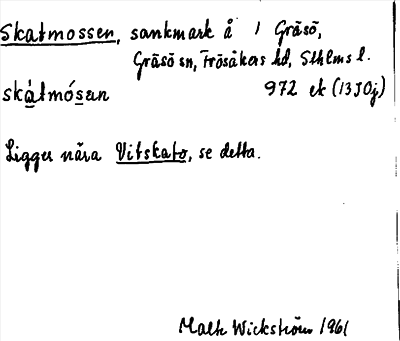 Skatmossen, sankmark å 1 Gräsö,
Gräsö sn, Frösåkers hd, Sthlms l.
skátmósan 972 ek (13J0j)
Ligger nära Vitskato, se detta.
Malte Wickström 1961